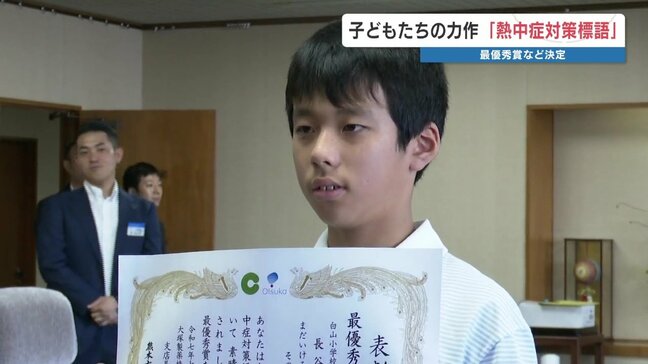 子どもたちの力作「熱中症対策標語」
最優秀賞など決定
Otsuka
表
最優秀
白山小学校
長谷
まだいけ
そ
あなたは
中症対策
いて 素晴
されまし
最優秀賞を
令和七年
大塚製薬
支店
熊本